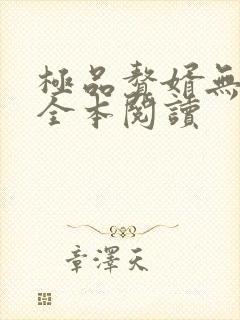 極品贅婿無
全本閱讀
章澤天